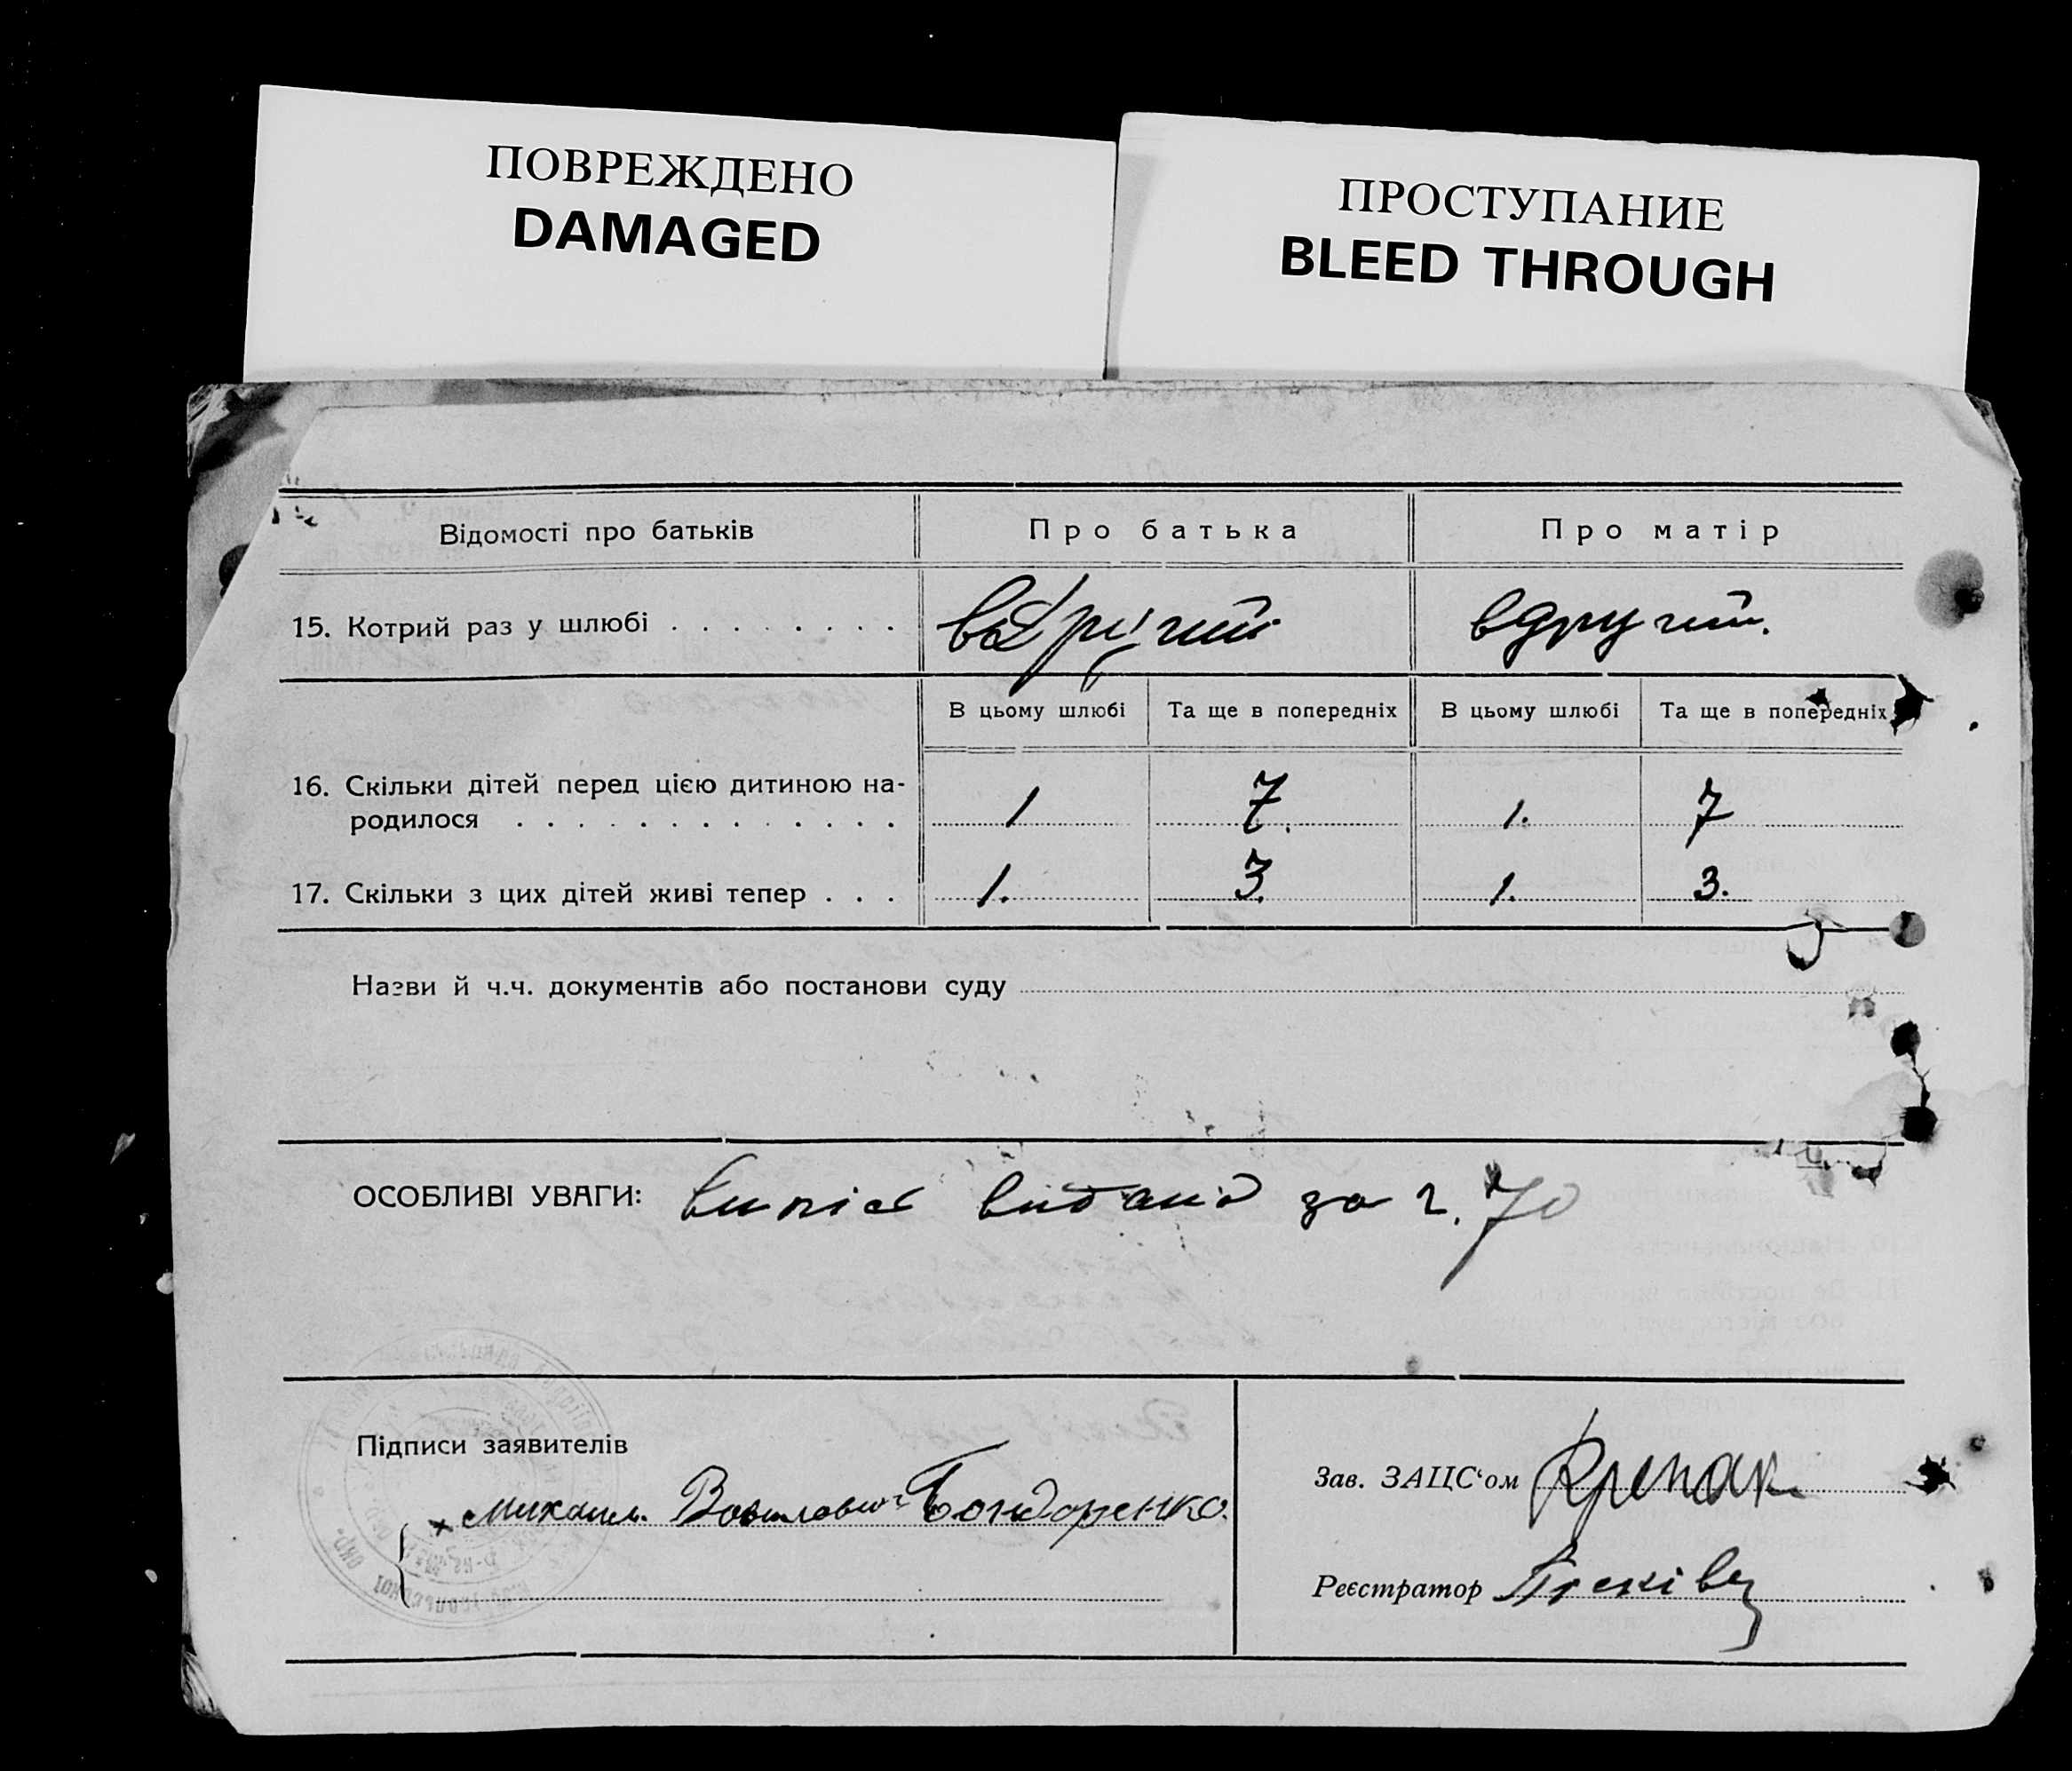 ПОВРЕЖДЕНО
DAMAGED
ПРОСТУПАНИЕ
BLEED THROUGH
Відомості про батьків
Про батька
Про матір
15. Котрий раз у шлюбі
вдругий
вдругий.
В цьому шлюбі
Та ще в попередніх
В цьому шлюбі
Та ще в попередніх
16. Скільки дітей перед цією дитиною на-
родилося
1
7.
1.
7
17. Скільки з цих дітей живі тепер . . .
1.
3.
1.
3.
Назви й ч.ч. документів або постанови суду
ОСОБЛИВІ УВАГИ: Випіс видано за ч. 70
Підписи заявителів
Михаил Бондаренко.
Зав. ЗАЦС‘ом
Реєстратор